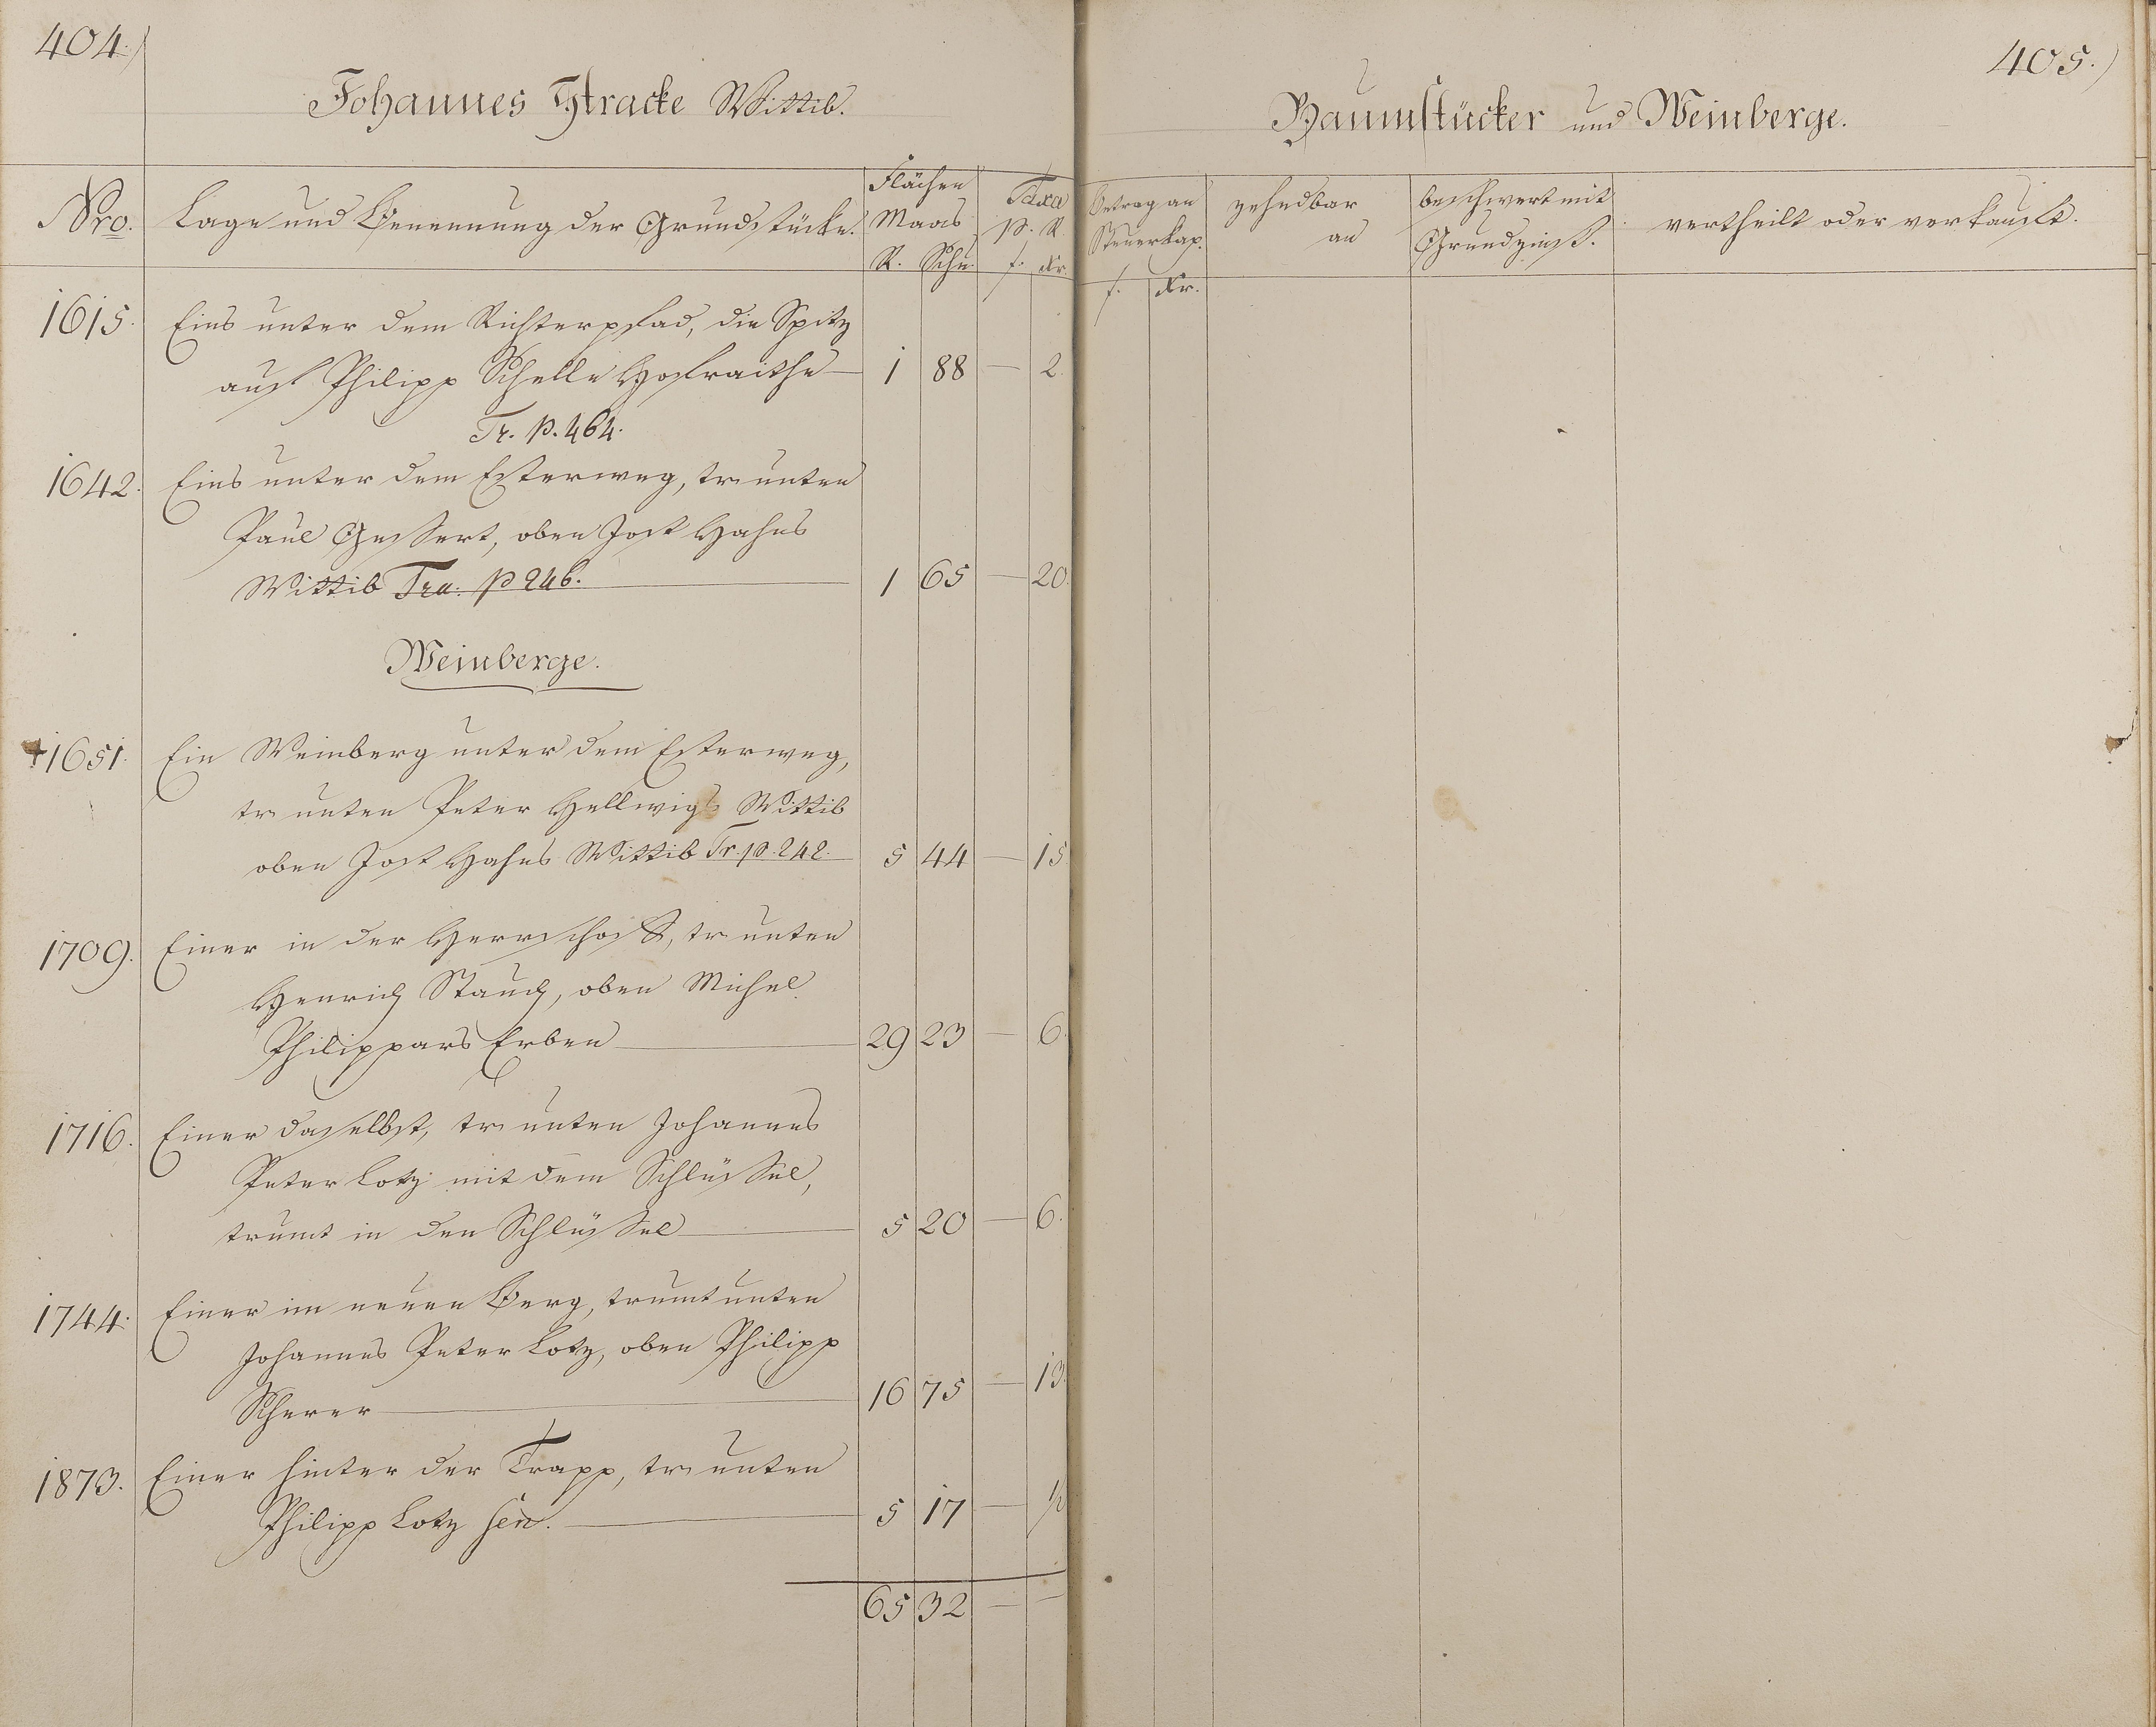 404.)
Johannes Stracke Wittib.
Nro.
Lage und Benennung der Grundstücke.
Flächen
Maas
R. Schu.
Taxa
p. R.
f. Kr.
1615. Eins unter dem Richterpfad, die Spitz
auf Philipp Schelle Hofraithe — 1 88 — 2.
Tr. p. 464.
1642. Eins unter dem Esterweg, tr unten
Paul Gessert, oben Jost Hahns
Wittib Tra. p 246. — 1 65 — 20.
Weinberge.
+1651. Ein Weinberg unter dem Esterweg,
tr unten Peter Hellwigs Wittib
oben Jost Hahns Wittib Tr. p. 242. — 5 44 — 15.
1709. Einer in der tr unten
Henrich Stauch, oben Michel
Philippars Erben — 29 23 — 6.
1716. Einer daselbst, tr unten Johannes
Peter Lotz mit dem Schlüssel,
trumt in den Schlüssel — 5 20 — 6.
1744. Einer im neuen Berg, trumt unten
Johannes Peter Lotz, oben Philipp
Scherer — 16 75 — 13.
1873. Einer hinter der Trapp, tr unten
Philipp Lotz sen. — 5 17 —
65 32 — —
405.)
Baumstücker und Weinberge.
Betrag an
Steuerkap.
f. Kr.
zehndbar
an
beschwert mit
Grundzinß.
vertheilt oder verkauft.